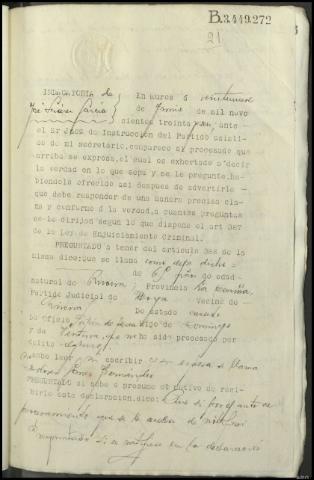 B.3.449.272
21
INDAGATORIA de
José Suárez García
En Muros á veintinueve
de Junio de mil nove
cientos treinta y seis, ante
el Sr Juez de Instrucción del Partido asisti-
do de mi secretario, comparece el procesado que
arriba se expresa, el cual es exhortado a decir
la verdad en lo que sepa y se le pregunte, ha-
biéndola ofrecido así después de advertirle
que debe responder de una manera precisa cla-
ra y conforme á la verdad, á cuantas preguntas
se le dirijan según lo que dispone el art 387
de la Ley de Enjuiciamiento Criminal.
PREGUNTADO a tenor del artículo 388 de la
misma dice: que se llama como deja dicho
de años de edad
natural de Provincia La Coruña
Partido Judicial de Noya Vecino de
De estado casado
De Oficio hijo de Domingo
y de Ventura, que no ha sido procesado por
delito
sabe leer y ni escribir es su esposa se llama
Gómez Fernández
PREGUNTADO si sabe o presume el motivo de reci-
birle esta declaración, dice: Que sí por el auto de
procesamiento que se le acaba de notificar
Preguntado si se ratifica en la declaración